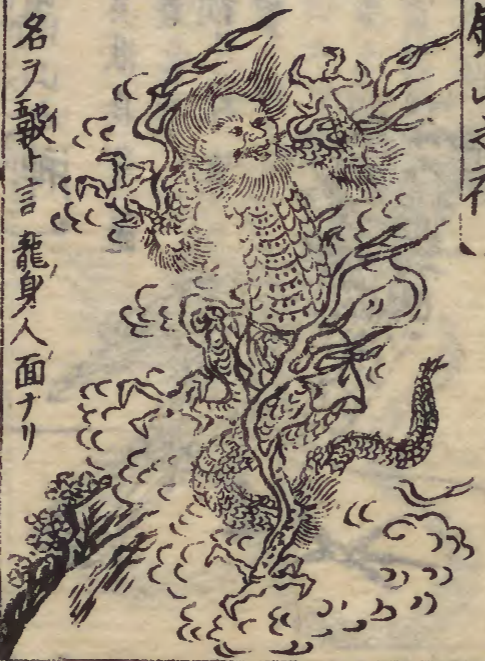 山之神
名ヲ皷ト言龍身人面ナリ